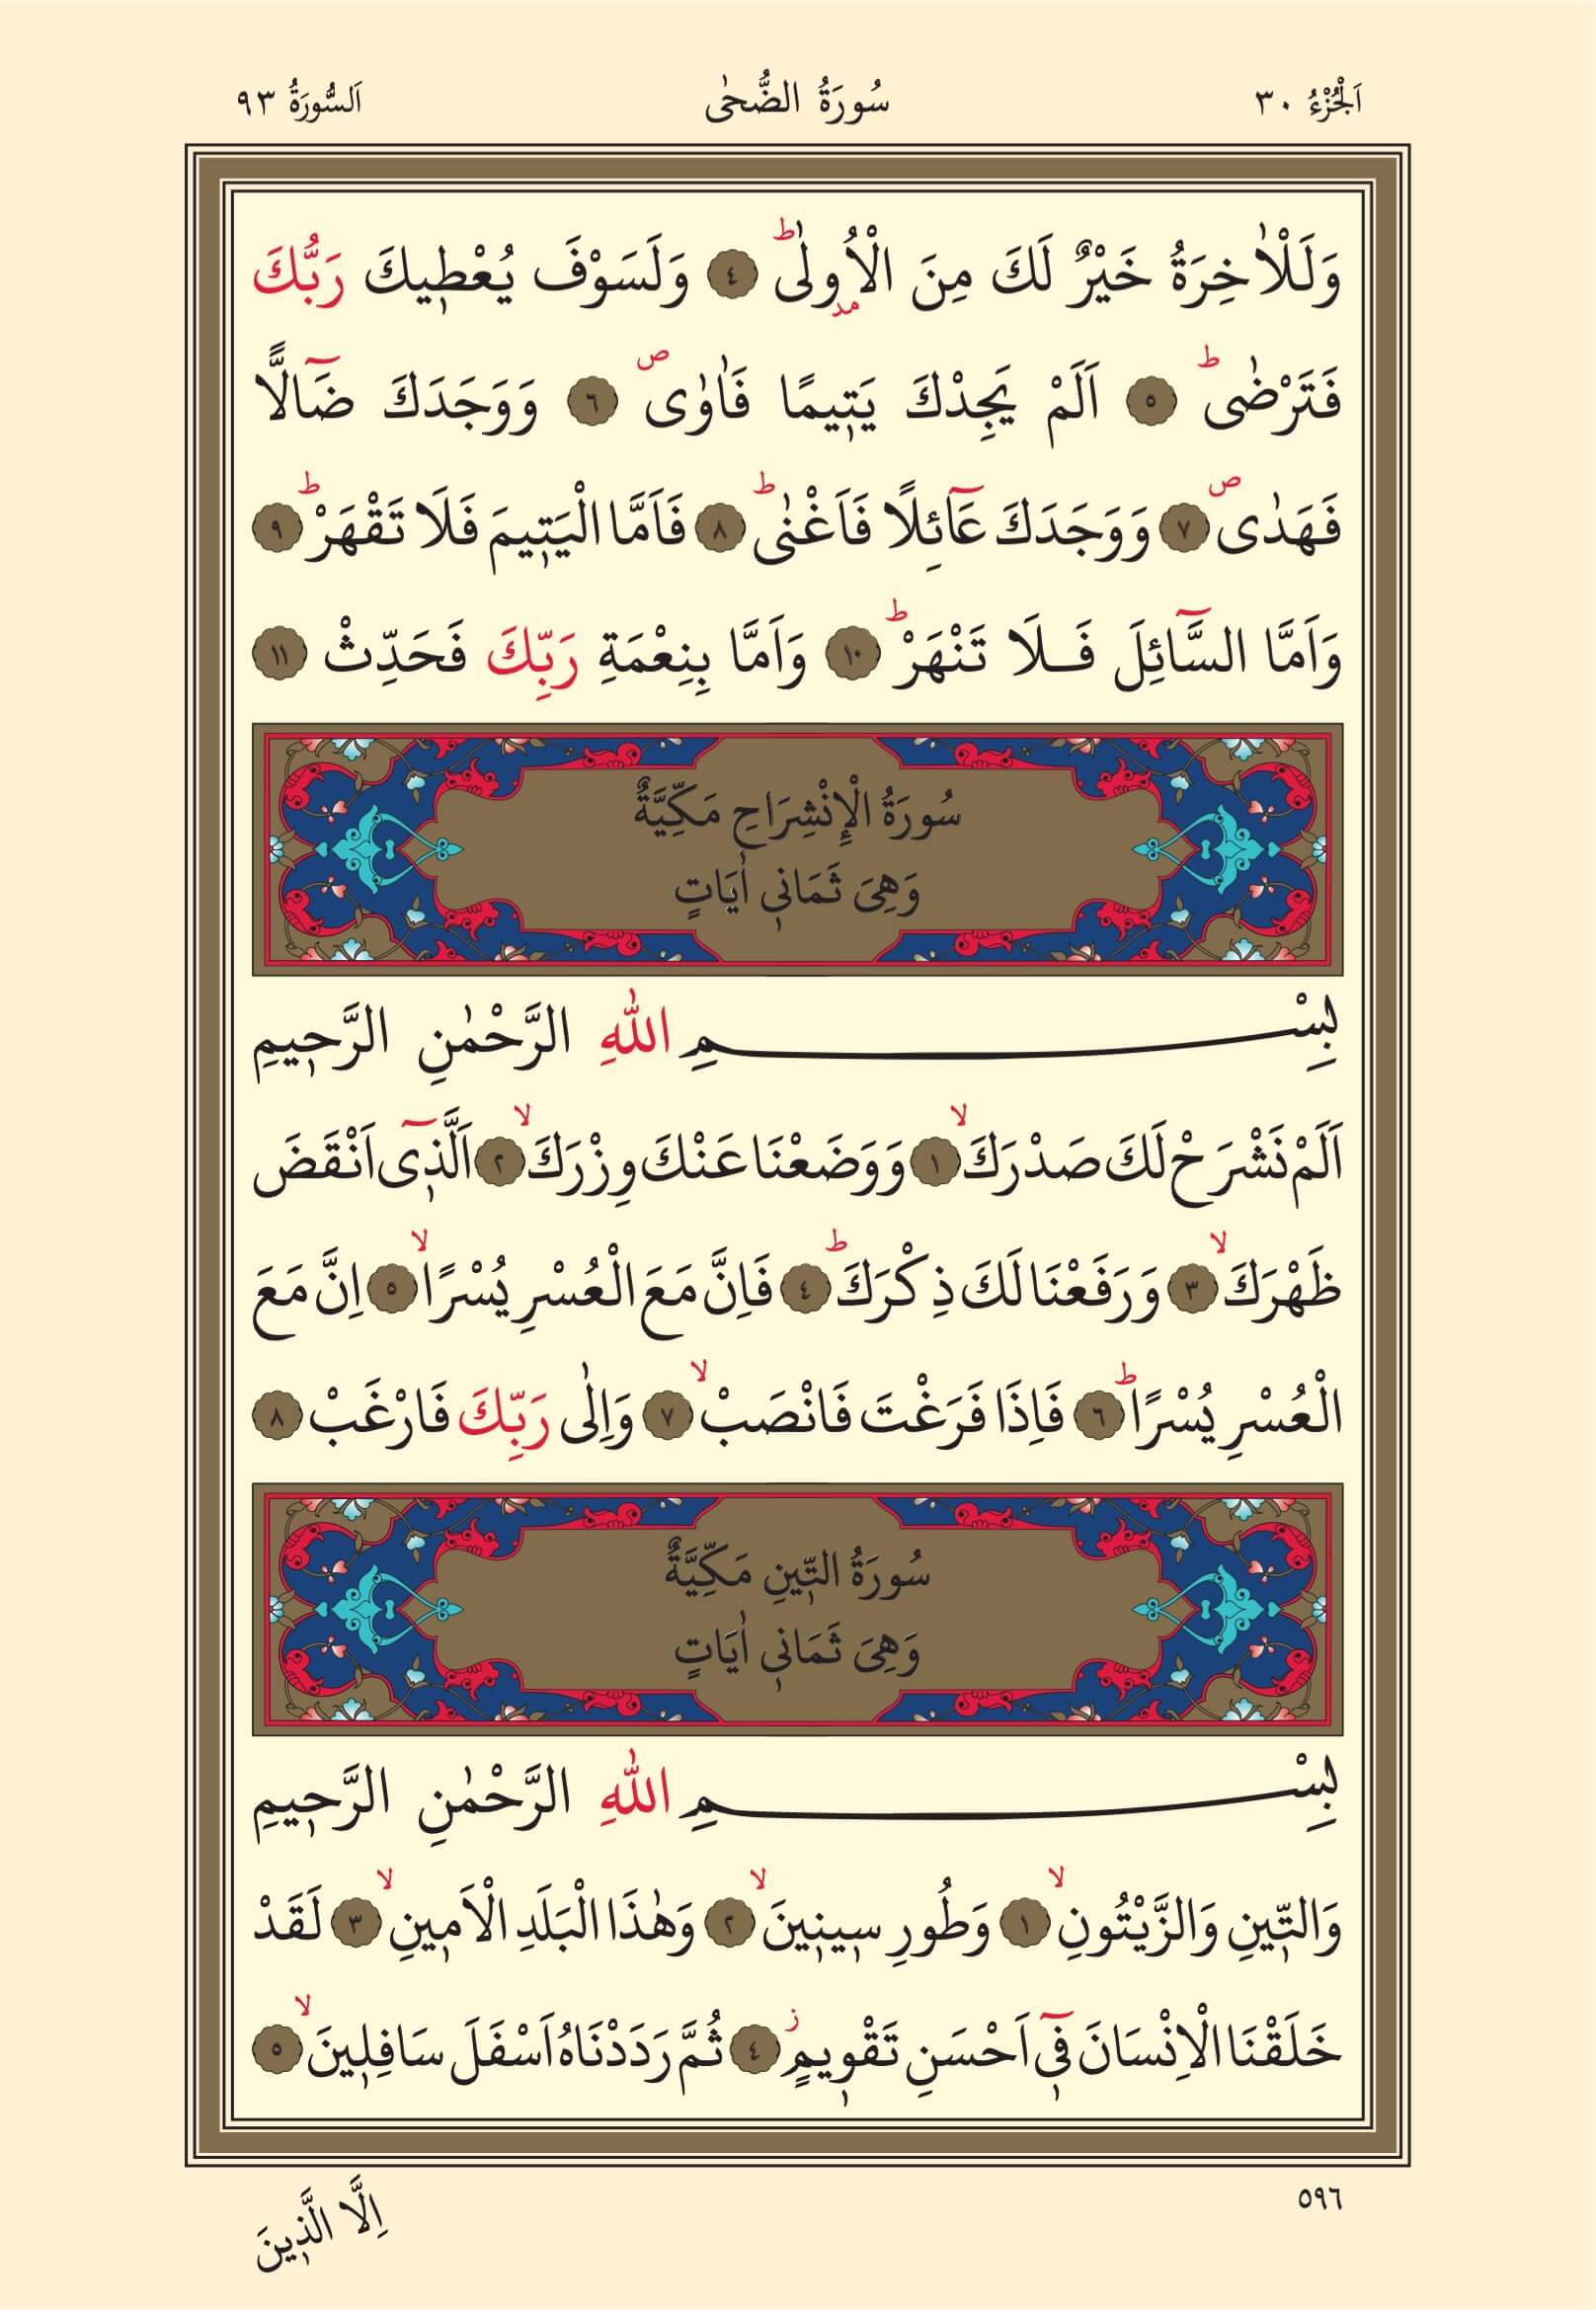 اَلْجُزْءُ ٣٠ سُورَةُ الضُّحٰى اَلسُّورَةُ ٩٣
وَلَلْاٰخِرَةُ خَيْرٌ لَكَ مِنَ الْاُو۫لٰىۜ ﴿٤﴾ وَلَسَوْفَ يُعْط۪يكَ رَبُّكَ
فَتَرْضٰىۜ ﴿٥﴾ اَلَمْ يَجِدْكَ يَت۪يمًا فَاٰوٰىۖ ﴿٦﴾ وَوَجَدَكَ ضَٓالًّا
فَهَدٰىۖ ﴿٧﴾ وَوَجَدَكَ عَٓائِلًا فَاَغْنٰىۜ ﴿٨﴾ فَاَمَّا الْيَت۪يمَ فَلَا تَقْهَرْۜ ﴿٩﴾
وَاَمَّا السَّٓائِلَ فَـلَا تَنْهَرْۜ ﴿١٠﴾ وَاَمَّا بِنِعْمَةِ رَبِّكَ فَحَدِّثْ ﴿١١﴾
سُورَةُ الْإِنْشِرَاحِ مَكِّيَّةٌ
وَهِيَ ثَمَان۪ي اٰيَاتٍ
بِسْــــــــمِ اللّٰهِ الرَّحْمٰنِ الرَّح۪يمِ
اَلَمْ نَشْرَحْ لَكَ صَدْرَكَۙ ﴿١﴾ وَوَضَعْنَا عَنْكَ وِزْرَكَۙ ﴿٢﴾ اَلَّذ۪ٓي اَنْقَضَ
ظَهْرَكَۙ ﴿٣﴾ وَرَفَعْنَا لَكَ ذِكْرَكَۜ ﴿٤﴾ فَاِنَّ مَعَ الْعُسْرِ يُسْرًاۙ ﴿٥﴾ اِنَّ مَعَ
الْعُسْرِ يُسْرًاۜ ﴿٦﴾ فَاِذَا فَرَغْتَ فَانْصَبْۙ ﴿٧﴾ وَاِلٰى رَبِّكَ فَارْغَبْ ﴿٨﴾
سُورَةُ التّ۪ينِ مَكِّيَّةٌ
وَهِيَ ثَمَان۪ي اٰيَاتٍ
بِسْــــــــمِ اللّٰهِ الرَّحْمٰنِ الرَّح۪يمِ
وَالتّ۪ينِ وَالزَّيْتُونِۙ ﴿١﴾ وَطُورِ س۪ين۪ينَۙ ﴿٢﴾ وَهٰذَا الْبَلَدِ الْاَم۪ينِۙ ﴿٣﴾ لَقَدْ
خَلَقْنَا الْاِنْسَانَ ف۪ٓي اَحْسَنِ تَقْو۪يمٍۘ ﴿٤﴾ ثُمَّ رَدَدْنَاهُ اَسْفَلَ سَافِل۪ينَۙ ﴿٥﴾
٥٩٦
اِلَّا الَّذ۪ينَ